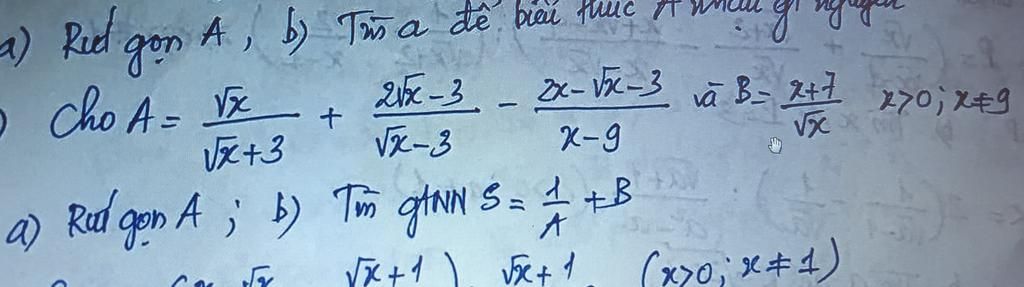 a) Rút gọn A, b) Tìm a để biểu thức A nhận gi nguyên
Cho A = √x/(√x+3) + (2√x-3)/(√x-3) - (2x-√x-3)/(x-9) và B = (x+7)/√x x>0; x≠9
a) Rút gọn A; b) Tìm gtNN S = 1/A + B
√x √x+1) √x+1 (x>0; x≠1)